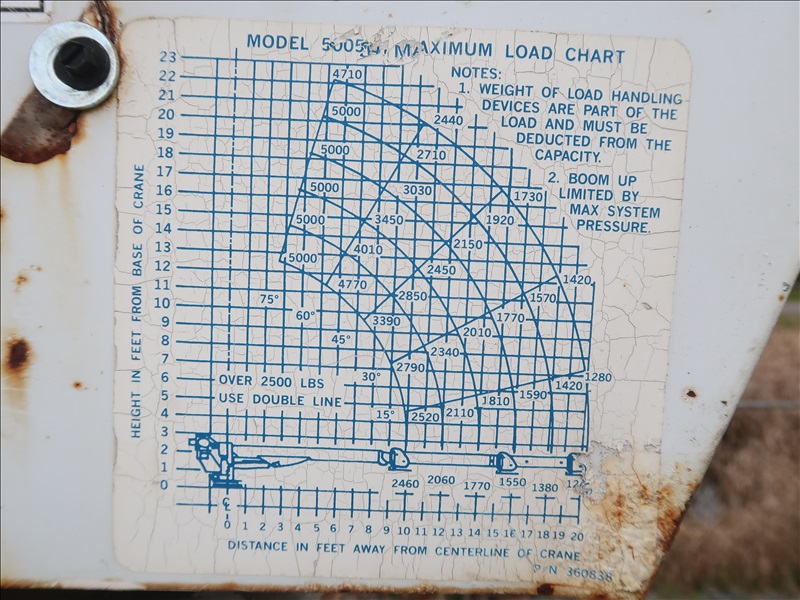 MODEL MAXIMUM LOAD CHART
NOTES:
1. WEIGHT OF LOAD HANDLING
DEVICES ARE PART OF THE
LOAD AND MUST BE
DEDUCTED FROM THE
CAPACITY.
2. BOOM UP
LIMITED BY
MAX SYSTEM
PRESSURE.
HEIGHT IN FEET FROM BASE OF CRANE
23
22
21
20
19
18
17
16
15
14
13
12
11
10
9
8
7
6
5
4
3
2
1
0
4710
5000 2440
5000 2710
5000 3030 1730
5000 3450 1920
5000 4010 2150
4770 2450 1420
75° 2850 1570
60° 3390 1770
45° 2010
2340
30° 2790 1280
OVER 2500 LBS 1420
USE DOUBLE LINE 1590
1810
15° 2520 2110
2460 2060 1770 1550 1380
0 1 2 3 4 5 6 7 8 9 10 11 12 13 14 15 16 17 18 19 20
DISTANCE IN FEET AWAY FROM CENTERLINE OF CRANE
P/N 360838